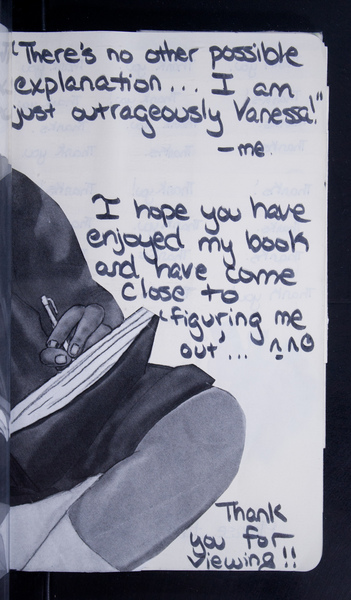 "There's no other possible
explanation... I am
just outrageously Vanessa!"
– me.
I hope you have
enjoyed my book
and have come
close to
'figuring me
out'... ^.^
Thank
you for
viewing!!